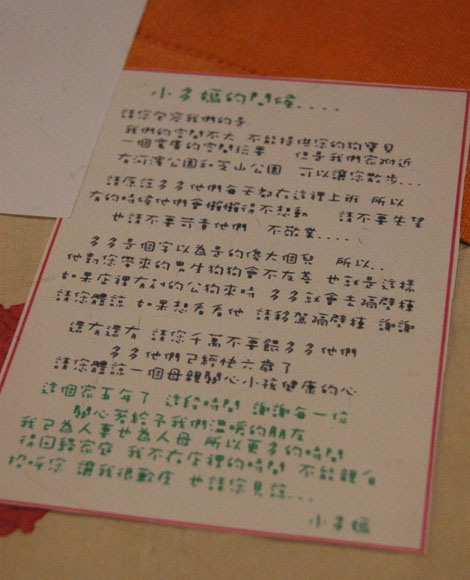 小多媽的問候....
請您包容我們的家
我們的空間不大 不能提供您的狗寶貝
一個寬廣的空間玩耍 但是我們家附近
有河濱公園和芝山公園 可以讓您散步...
請原諒多多他們每天都在這裡上班 所以
有的時候他們會懶懶得不想動 請不要失望
也請不要苛責他們 不敬業....
多多是個字以為是的傻大個兒 所以..
他對您帶來的男生狗狗會不友善 也就是這樣
如果店裡有別的公狗來時 多多就會去隔壁棟
請您體諒 如果想看看他 請移駕隔壁棟 謝謝
還有還有 請您千萬不要餵多多他們
多多他們已經快六歲了
請您體諒一個母親關心小孩健康的心
這個家五年了 這段時間 謝謝每一位
關心著給予我們溫暖的朋友
我已為人妻也為人母 所以更多的時間
得回歸家庭 我不在店裡的時間 不能親自
招呼您 讓我很歉疚 也請您見諒...
小多媽